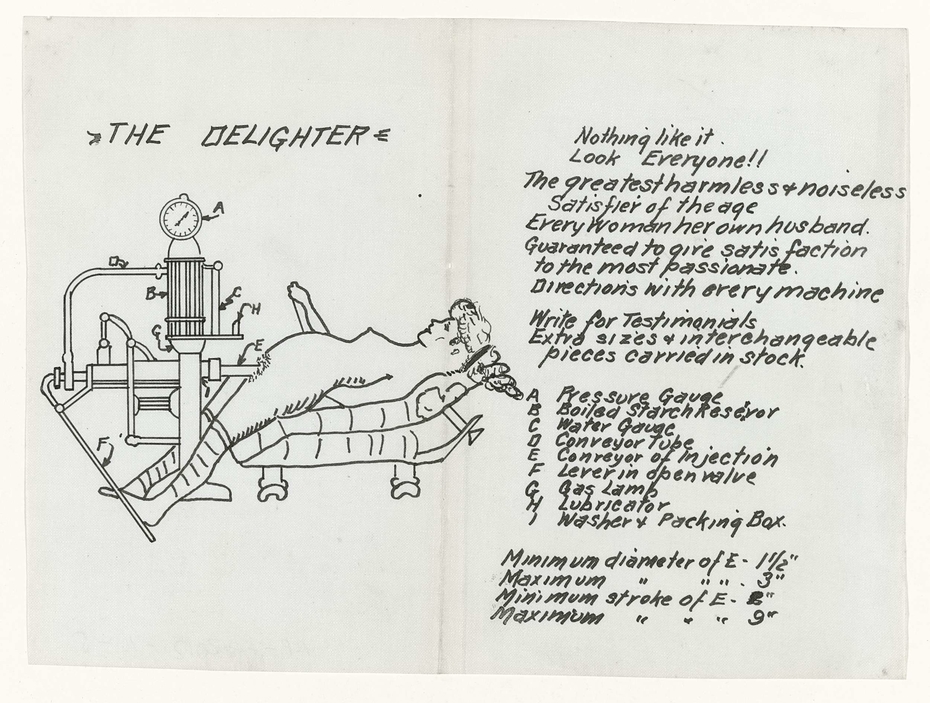 THE DELIGHTER
A
B
C
D
H
E
G
F
Nothing like it.
Look Everyone!!
The greatest harmless & noiseless
Satisfier of the age
Every Woman her own husband.
Guaranteed to give satisfaction
to the most passionate.
Directions with every machine
Write for Testimonials
Extra sizes & interchangeable
pieces carried in stock.
A Pressure Gauge
B Boiled Starch Reservor
C Water Gauge
D Conveyor Tube
E Conveyor of Injection
F Lever in open valve
G Gas Lamp
H Lubricator
I Washer & Packing Box.
Minimum diameter of E - 1 1/2"
Maximum " " " . 3"
Minimum stroke of E -
Maximum " " " 9"